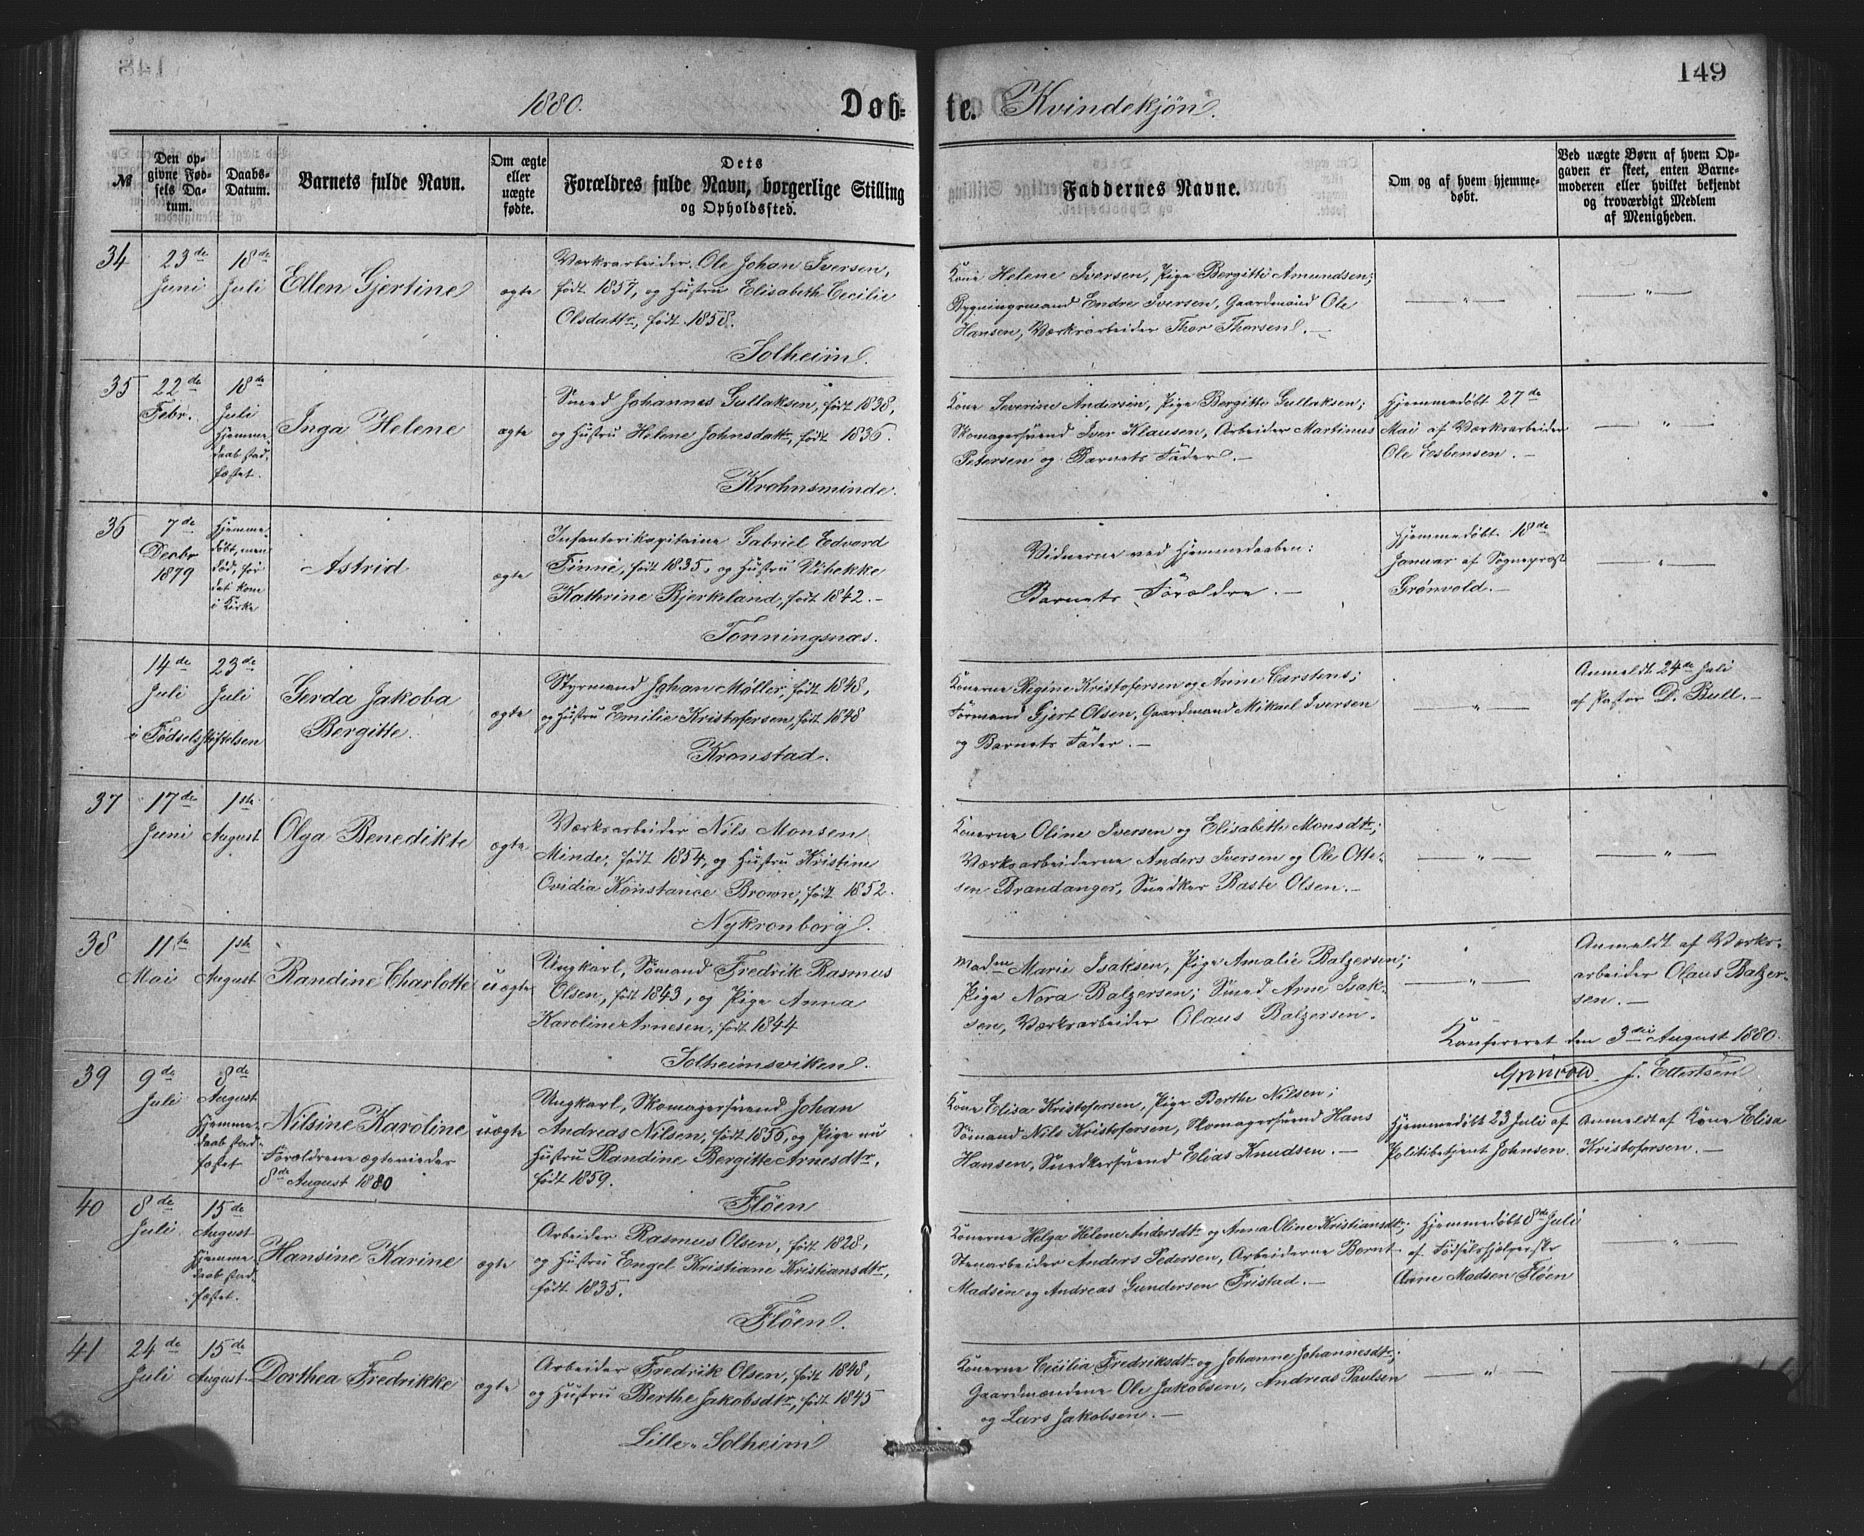 149
1880. Døb-te. Kvindekjøn.
№
Den op-
givne Fød-
sels Da-
tum.
Daabs-
Datum.
Barnets fulde Navn.
Om ægte
eller
uægte
fødte.
Dets
Forældres fulde Navn, borgerlige Stilling
og Opholdssted.
Faddernes Navne.
Om og af hvem hjemme-
døbt.
Ved uægte Børn af hvem Op-
gaven er skeet, enten Barne-
moderen eller hvilket bekjendt
og troværdigt Medlem
af Menigheden.
34
23de
Juni
18de
Juli
Ellen Gjertine
ægte
Værksarbeider Ole Johan Iversen,
født 1857, og Hustru Elisabeth Cecilie
Olsdattr, født 1858.
Solheim.
Kone Helene Iversen, Pige Bergitte Amundsen;
Bygningsmand Endre Iversen, Gaardmand Ole
Hansen, Værksarbeider Thor Thorsen. —
— " —
— " —
35
22de
Febr.
18de
Juli
Hjemme-
daab stad-
fæstet.
Inga Helene
ægte
Smed Johannes Gullaksen, født 1838,
og Hustru Helene Johnsdattr, født 1836.
Krohnsminde.
Kone Severine Andersen, Pige Bergitte Gullaksen;
Skomagersvend Iver Klausen, Arbeider Martinus
Petersen og Barnets Fader. —
Hjemmedøbt 27de
Mai af Værksarbeider
Ole Esbensen. —
— " —
36
7de
Decbr
1879
Hjemme-
døbt, men
død, før
det kom
i Kirke
Astrid
ægte
Infanterikapitaine Gabriel Edvard
Finne, født 1835, og Hustru Vibekke
Kathrine Bjerkeland, født 1842. —
Tonningsnæs.
Vidnerne ved Hjemmedaaben:
Barnets Forældre. —
Hjemmedøbt 18de
Januar af Sognepræst
Grønvold. —
— " —
14de
Juli
23de
Juli
i Fødselsstiftelsen
Gerda Jakoba
Bergitte.
ægte
Styrmand Johan Møller, født 1848,
og Hustru Emilie Kristofersen, født 1848
Kronstad.
Konerne Regine Kristofersen og Anne Carstens;
Formand Gjert Olsen, Gaardmand Mikael Iversen
og Barnets Fader. —
— " —
Anmeldt 24de Juli
af Pastor D. Bull. —
37
17de
Juni
1ste
August
Olga Benedikte
ægte
Værksarbeider Nils Monsen
Minde, født 1854, og Hustru Kristine
Ovidia Konstance Brown, født 1852.
Nykronborg.
Konerne Oline Iversen og Elisabeth Monsdtr;
Værksarbeiderne Anders Iversen og Ole Otte-
sen Brandanger, Snedker Baste Olsen. —
— " —
— " —
38
11te
Mai
1ste
August
Randine Charlotte
uægte
Ungkarl, Sømand Fredrik Rasmus
Olsen, født 1843, og Pige Anna
Karoline Arnesen, født 1844
Solheimsviken.
Madm Marie Isaksen, Pige Amalie Balzersen;
Pige Nora Balzersen; Smed Arne Isak-
sen, Værksarbeider Olaus Balzersen.
— " —
Anmeldt af Værks-
arbeider Olaus Balzer-
sen. —
Konfereret den 3die August 1880.
Grönvold J. Ellertsen
39
9de
Juli
8de
August
Hjemme-
daab stad-
fæstet
Nilsine Karoline
Forældrene ægteviede
8de August 1880
uægte
Ungkarl, Skomagersvend Johan
Andreas Nilsen, født 1856, og Pige nu
Hustru Randine Bergitte Arnesdtr,
født 1859.
Fløen
Kone Elisa Kristofersen, Pige Berthe Nilsen;
Sømand Nils Kristofersen, Skomagersvend Hans
Hansen, Snedkersvend Elias Knudsen. —
Hjemmedøbt 23 Juli af
Politibetjent Johnsen.
Anmeldt af Kone Elisa
Kristofersen. —
40
8de
Juli
15de
August
Hjemme
daab stad-
fæstet.
Hansine Karine
ægte
Arbeider Rasmus Olsen, født 1828,
og Hustru Engel Kristiane Kristiansdtr,
født 1835.
Fløen.
Konerne Helga Helene Andersdtr og Anna Oline Kristiansdtr;
Stenarbeider Anders Pedersen, Arbeiderne Bernt
Madsen og Andreas Gundersen Fristad. —
Hjemmedøbt 8de Juli
af Fødselshjelperske
Anne Madsen Fløen
"
41
24de
Juli
15de
August
Dorthea Fredrikke
ægte
Arbeider Fredrik Olsen, født 1848,
og Hustru Berthe Jakobsdtr, født 1845
Lille-Solheim
Konerne Cecilia Fredriksdtr og Johanne Johannesdtr;
Gaardmændene Ole Jakobsen, Andreas Paulsen
og Lars Jakobsen. —
— " —